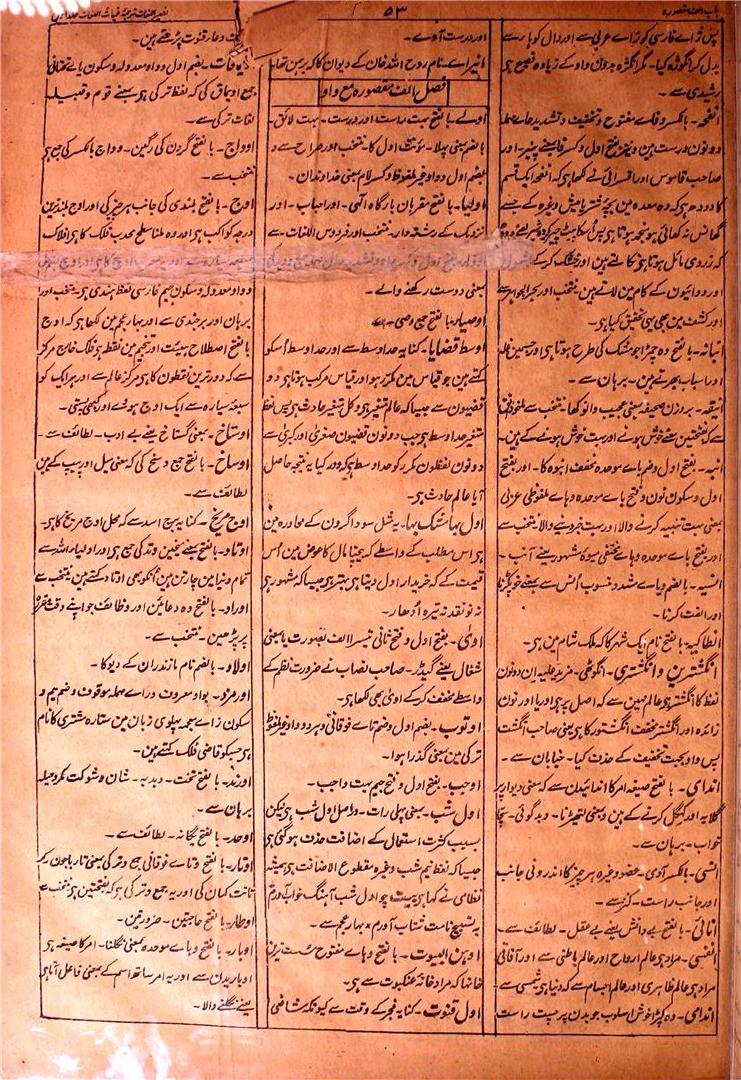 باب الف مقصورہ
۵۳
نصیر اللغات ترجمۂ غیاث اللغات جلد اول
پس زاے فارسی کو زاے عربی سے اور دال کو ہا سے
بدل کر انگوژہ کیا۔ مگر انگژہ بدون واو کے زیادہ فصیح ہی
رشیدی سے۔
انفحہ۔ بالکسر و فاے مفتوح و تخفیف و تشدید حاے مہملہ
دونون درست ہین و نیز بفتح اول و کسر فا بمعنے پنیر۔ اور
صاحب قاموس اور اقسرائی نے لکھا ہی کہ انفحہ ایک قسم
کا دودھ ہی کہ وہ معدہ مین بچہ شتر یا میش وغیرہ کے جسنے
گھانس نہ کھائی ہو منجمد ہوتا ہی پس اسکا پیٹ چیر کر
کہ زردی مائل ہوتا ہی نکالتے ہین اور خشک کرکے
اور دوائیون کے کام مین لاتے ہین۔ منتخب اور بحر الجواہر سے
اور کشف مین بھی یہی تحقیق کیا ہی۔
انبانہ۔ بالفتح وہ چمڑا جو مشک کی طرح ہوتا ہی اور جسمین غلہ
اور اسباب بھرتے ہین۔ برہان سے۔
انیقہ۔ بروزن صحیفہ بمعنی عجیب و انوکھا۔ منتخب سے ماخوذ انق
سے کہ بفتحتین بمعنے خوش ہونے اور بہت خوش ہونے کے ہین۔
انبہ۔ بفتح اول و ضم باے موحدہ مخفف انبوہ کا۔ اور بفتح
اول و سکون نون و فتح باے موحدہ و ہاے ملفوظی عربی
بمعنی بہت تنبیہ کرنے والا اور بہت خبر دینے والا۔ منتخب سے
اور بفتح باے موحدہ و ہاے مختفی میوہ مشہور یعنے آنب۔
انسیہ۔ بالضم و یاے مشدد منسوب اُنس سے بمعنے خو پکڑنا
اور الفت کرنا۔
انطاکیہ۔ بالفتح نام ایک شہر کا کہ ملک شام مین ہی۔
انگشترین و انگشتری۔ انگوٹھی۔ مزید علیہ ان دونون
لفظ کا انگشتر ہی و عالم مہین سے کہ اصل پہ ہی اور یا اور نون
زائدہ اور انگشتر مخفف انگشتور کا ہی یعنی صاحب انگشت
پس واو بجہت تخفیف کے حذف کیا۔ خیابان سے۔
اندای۔ بالفتح صیغہ امر کا اندائیدن سے کہ معنی دیوار پر
گلابہ اور کہگل کرنے کے ہین و بمعنی لتھیڑنا۔ و بدگوئی۔ سچا
خواب۔ برہان سے۔
انسی۔ بالکسر آدمی۔ عضو وغیرہ ہر چیز کا اندرونی جانب
اور جانب راست۔ کنز سے۔
انانی۔ بالفتح بے دانش یعنے بے عقل۔ لطائف سے۔
انفسی۔ مراد ہی عالم ارواح اور عالم باطنی سے اور آفاقی
مراد ہی عالم ظاہری اور عالم اجسام سے کہ دنیا ہی شمسی سے
اندامی۔ وہ کپڑا خوش اسلوب جو بدن پر چست راست
اور درست آوے۔
انیرای۔ نام روح اللہ خان کے دیوان کا کہ برہمن تھا۔
فصل الف مقصورہ مع واو
اولے۔ بالفتح بہت راست اور درست۔ بہت لائق۔
بالضم بمعنی پہلا۔ مونث اول کا۔ منتخب اور صراح سے و
بضم اول و واو غیر ملفوظ و کسر لام بمعنی خداوندان۔
اولیا۔ بالفتح مقربان بارگاہ الٰہی۔ اور احباب۔ اور
نزدیک کے رشتہ دار۔ منتخب اور فردوس اللغات سے
بمعنی دوست رکھنے والے۔
اوصیا۔ بالفتح جمع وصی۔
اوسط قضایا۔ کنایہ حد اوسط سے اور حد اوسط اُسکو
کہتے ہین جو قیاس مین مکرر ہو اور قیاس مرکب ہوتا ہی دو
قضیون سے جیسا کہ عالم متغیر ہی و کل متغیر حادث ہی پس لفظ
متغیر حد اوسط ہی جب دونون قضیون صغریٰ اور کبریٰ سے
دونون لفظون مکرر کو حد اوسط ہی کہ دور کیا یہ نتیجہ حاصل
آیا عالم حادث ہی۔
اول بہا مشک بہا۔ یہ مثل سوداگرون کے محاورہ مین
ہی اس مطلب کے واسطے کہ بیچنا مال کا عوض مین اُس
قیمت کے کہ خریدار اول دیتا ہی بہتر ہی جیسا کہ مشہور ہی
نہ نو نقد نہ تیرہ اُدھار۔
اوی۔ بفتح اول و فتح ثانی تیسرا الف بصورت یا بمعنی
شغال یعنے گیدڑ۔ صاحب نصاب نے ضرورت نظم کے
واسطے مخفف کرکے اوی بھی لکھا ہی۔
اوتوب۔ بضم اول و ضم تاے فوقانی و ہر دو واو غیر ملفوظ
ترکی مین بمعنی گذرا ہوا۔
اوجب۔ بفتح اول و فتح جیم بہت واجب۔
اول شب۔ بمعنی پہلی رات۔ و دراصل اول شب ہی لیکن
بسبب کثرت استعمال کے اضافت حذف ہو گئی ہی
جیسا کہ لفظ نیم شب وغیرہ مقطوع الاضافت ہی ہمیشہ
نظامی نے کہا ہی بیت چو اول شب آہنگ خواب آورم
بہ تسبیح نامت شتاب آورم ٭ بہار عجم سے۔
اوہن البیوت۔ بالفتح و ہاے مفتوح سست ترین
خانہا کہ مراد خانہ عنکبوت سے ہی۔
اول قنوت۔ کنایہ فجر کے وقت سے کیونکہ شافعی
دعاء قنوت پڑھتے ہین۔
اویماقات۔ بضم اول و واو معدولہ و سکون یاے تحتانی
جمع اویماق کی کہ لفظ ترکی ہی بمعنے قوم و قبیلہ۔
لغات ترکی سے۔
اوواج۔ بالفتح گردن کی رگین۔ و واج بالکسر کی جمع ہی
منتخب سے۔
اوج۔ بالفتح بلندی کی جانب ہر چیز کی اور اوج بلندترین
درجہ کواکب ہی اور وہ ملنا سطح محدب فلک کا ہی افلاک
و واو معدولہ و سکون جیم فارسی لفظ ہندی ہی۔ منتخب اور
برہان اور برجندی سے اور بہار عجم مین لکھا ہی کہ اوج
بالفتح اصطلاح ہیئت اور تنجیم مین نقطہ ہی فلک خارج مرکز
سے کہ دور ترین نقطون کا ہی مرکز عالم سے اور ہر ایک کو
سبعہ سیارہ سے ایک اوج ہووے اور کبھی پستی۔
اوستاخ۔ بمعنی گستاخ یعنے بے ادب۔ لطائف سے۔
اوساخ۔ بالفتح جمع وسخ کی کہ معنی میل اور پیپ کے ہین
لطائف سے۔
اوج مریخ۔ کنایہ برج اسد سے کہ محل اوج مریخ کا ہی۔
اوتاد۔ بالفتح بمعنے میخین وتد کی جمع ہی اور اولیاء اللہ سے
تمام دنیا مین چار تن ہین اُنکو بھی اوتاد کہتے ہین منتخب سے
اوراد۔ بالفتح وہ دعائین اور وظائف جو اپنے وقت مقررہ
پر پڑھین۔ منتخب سے۔
اولاد۔ بالضم نام مازندران کے دیو کا۔
اورمزد۔ بواو معروف و راے مہملہ موقوف و ضم میم و
سکون زاے معجمہ پہلوی زبان مین ستارہ مشتری کا نام
ہی جسکو قاضی فلک کہتے ہین۔
اورند۔ بالفتح تخت۔ و بدبہ۔ شان و شوکت مکر و حیلہ
برہان سے۔
اوحد۔ بالفتح یگانہ۔ لطائف سے۔
اوتار۔ بالفتح و تاے فوقانی جمع وتر کی بمعنی تار باجون کے
تانت کمان کی اور یہ جمع وتر کی ہی کہ بفتحتین ہی منتخب سے
اوطار۔ بالفتح حاجتین۔ ضرورتین۔
اوبار۔ بالفتح و باے موحدہ بمعنی نگلنا۔ امر کا صیغہ ہی
اوباریدن سے اور یہ امر ساتھ اسم کے بمعنی فاعل آتا ہی
یعنے نگلنے والا۔